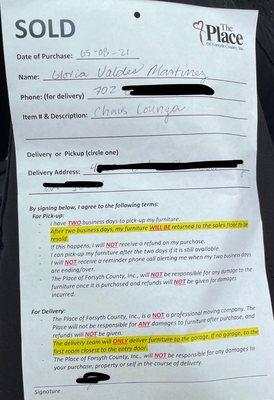 SOLD
The Place
Of Forsyth County, Inc.
Date of Purchase: 05-08-21
Name: Gloria Valdes Martinez
Phone: (for delivery) 702
Item # & Description: Chaus Lounga
Delivery or Pickup (circle one)
Delivery Address:
By signing below, I agree to the following terms:
For Pick-up:
- I have TWO business days to pick-up my furniture.
- After two business days, my furniture WILL BE returned to the sales floor to be
resold.
- If this happens, I will NOT receive a refund on my purchase.
- I can pick-up my furniture after the two days if it is still available.
- I will NOT receive a reminder phone call alerting me when my two business days
are ending/over.
- The Place of Forsyth County, Inc., will NOT be responsible for any damage to the
furniture once it is purchased and refunds will NOT be given for damages
incurred.
For Delivery:
- The Place of Forsyth County, Inc., is a NOT a professional moving company. The
Place will not be responsible for ANY damages to furniture after purchase, and
refunds will NOT be given.
- The delivery team will ONLY deliver furniture to the garage. If no garage, to the
first room closest to the entry door.
- The Place of Forsyth County, Inc., will NOT be responsible for any damages to
your purchase, property or self in the course of delivery.
Signature